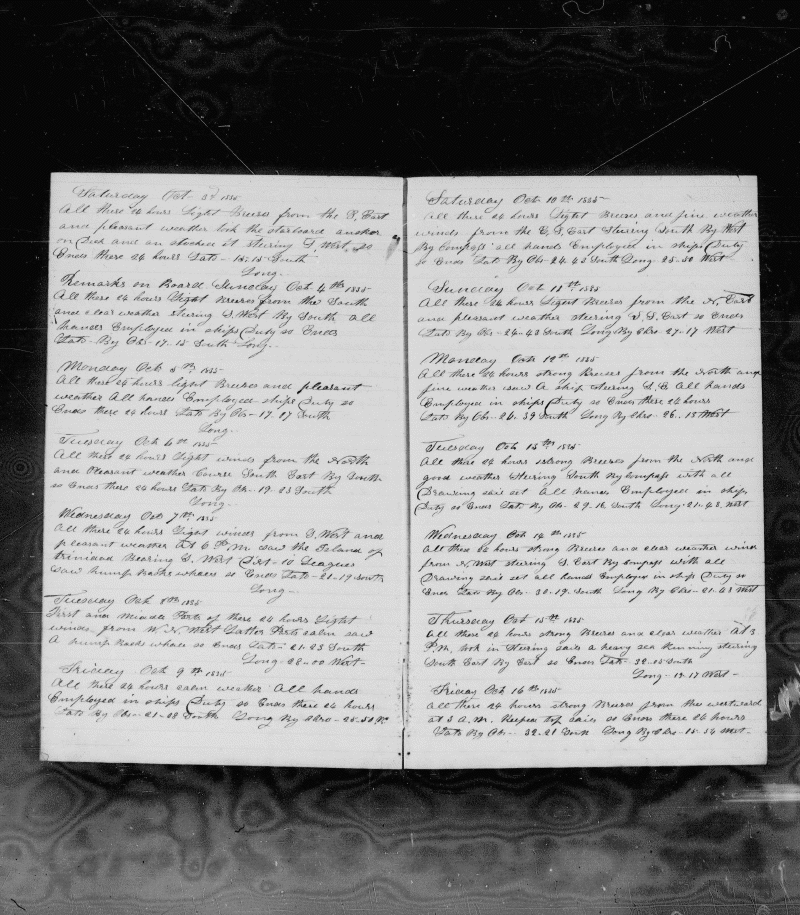 Saturday Oct 3d 1885
All these 24 hours Light Breeses from the S, East
and pleasant weather took the starboard anchor
on Deck and an stocked it steering S, West, so
Ends these 24 hours Lat- 15.15 South
Long.
Remarks on Board Sunday Oct 4th 1885
All these 24 hours Light Breeses from the South
and clear weather steering S, West By South all
hands Employed in ships Duty so Ends
Lat- By Obs- 17-15 South Long-
Monday Oct 5th 1885
All these 24 hours light Breeses and pleasant
weather All hands Employed ships Duty so
Ends these 24 hours Lat By Obs- 17.27 South
Long-
Tuesday Oct 6th 1885
All these 24 hours Light winds from the North
and Pleasant weather Course South East By South
so Ends these 24 hours Lat By Obs- 19-23 South
Long-
Wednesday Oct 7th 1885
All these 24 hours Light winds from S, West and
pleasant weather at 6 P.M. saw the Island of
trinidad Bearing S. West Dist- 10 Leagues
saw hump backs whales so Ends Lat- 21-19 South
Long-
Tuesday Oct 8th 1885
First and Middle Parts of these 24 hours Light
winds from W. N. West Latter Part calm saw
A hump Back whale so Ends Lat- 21-23 South
Long- 28-00 West-
Friday Oct 9th 1885
All these 24 hours calm weather All hands
Employed in ships Duty so Ends these 24 hours
Lat By Obs- 21-28 South Long By Chro- 28-50 W
Saturday Oct 10th 1885
All these 24 hours Light Breeses and fine weather
winds from the E, S, East Steering South By West
By Compass all hands Employed in ships Duty
so Ends Lat By Obs- 24-43 South Long- 25-50 West
Sunday Oct 11th 1885
All these 24 hours Light Breeses from the N, East
and pleasant weather steering S, S, East so Ends
Lat By Obs- 24-43 South Long By Chro- 27-17 West
Monday Oct 12th 1885
All these 24 hours strong Breeses from the North and
fine weather saw A ship steering S. E All hands
Employed in ships Duty so Ends these 24 hours
Lat By Obs- 26.39 South Long By Chro- 26.13 West
Tuesday Oct 13th 1885
All these 24 hours strong Breeses from the North and
good weather steering South By Compass with all
Drawing sail set All hands Employed in ships
Duty so Ends Lat By Obs- 29.16 South Long- 21-43 West
Wednesday Oct 14th 1885
All these 24 hours strong Breeses and clear weather wind
from N, West steering S, East By Compass with all
Drawing sail set all hands Employed in ship Duty so
Ends Lat By Obs- 30-19 South Long By Chro- 21-43 West
Thursday Oct 15th 1885
All these 24 hours strong Breeses and clear weather At 3
P.M. took in Steering sails a heavy sea running steering
South East By East so Ends Lat- 32-05 South
Long- 19-17 West-
Friday Oct 16th 1885
All these 24 hours strong Breeses from the westward
at 5 A.M. Reefed top sails so Ends these 24 hours
Lat By Obs- 32-21 South Long By Chro- 15-54 West-